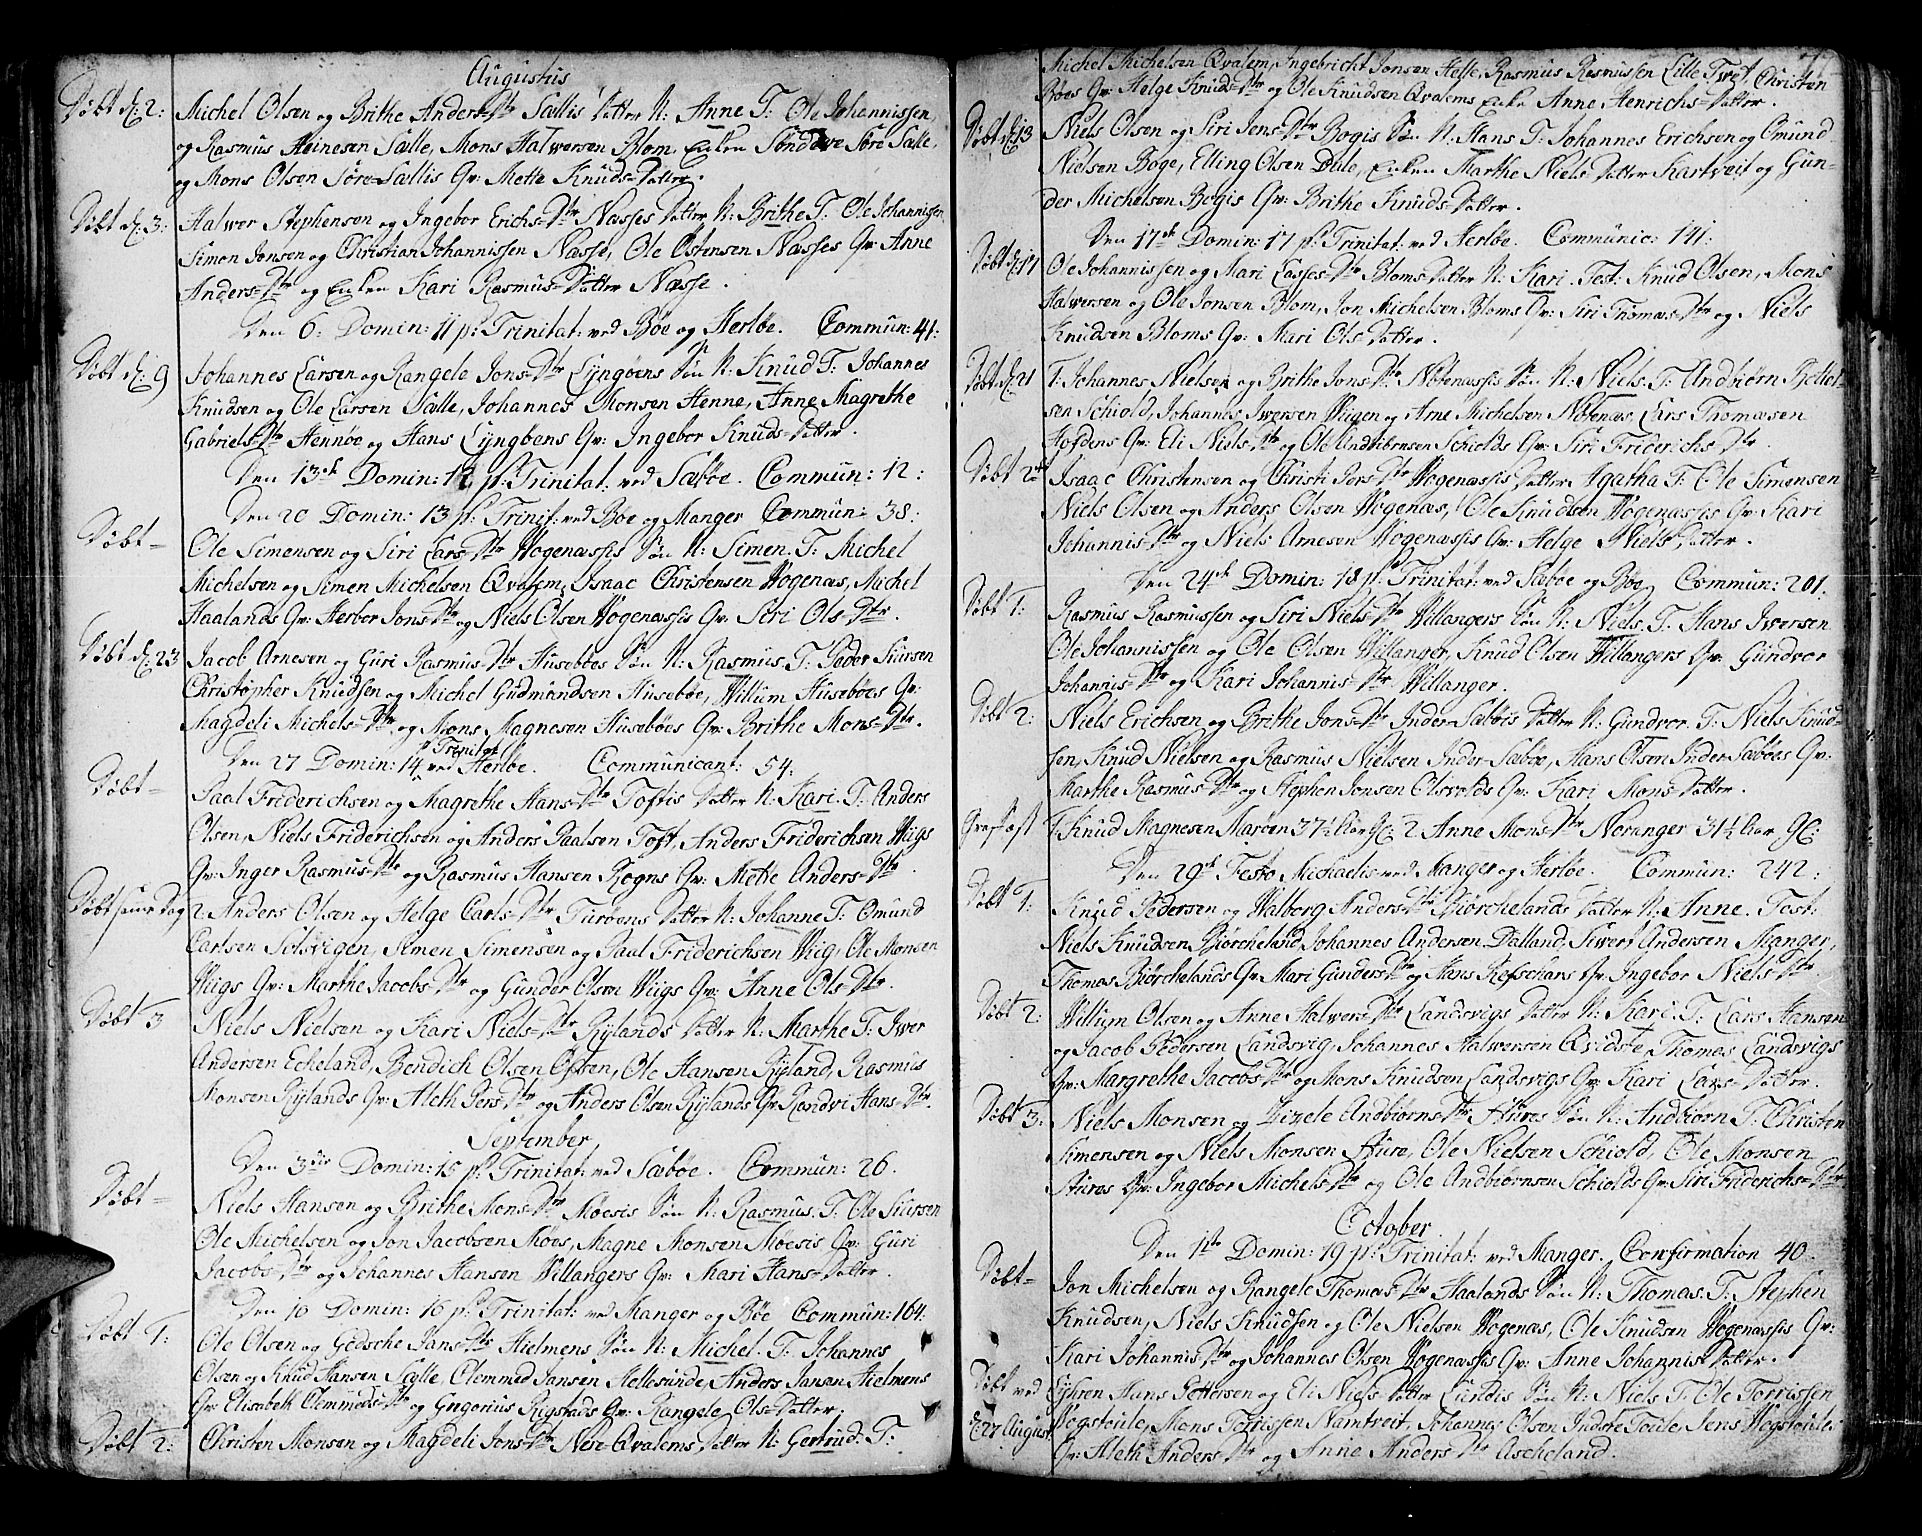 Augustus
Døbt d: 2: Michel Olsen og Brithe Anders-Dtr Sællis Datter N: Anne T: Ole Johannissen,
og Rasmus Heinesen Sælle, Mons Halwersen Blom, Enken Søre Sælle,
og Mons Olsen Søre-Sællis Qv: Mette Knuds-Datter.
Døbt d: 3: Halwer Stephensen og Ingebor Erichs-Dtr Næsses Datter N: Brithe T: Ole Johannissen
Simon Jonsen og Christian Johannissen Næsse, Ole Østensen Næsses Qv: Anne
Anders-Dtr og Enken Kari Rasmus-Datter Næsse.
Den 6: Domin: 11 p: Trinitat: ved Bøe og Herløe. Commun: 41:
Døbt d: 9 Johannes Larsen og Rangele Jons-Dtr Lyngøens Søn N: Knud T: Johannes
Knudsen og Ole Larsen Sælle, Johannes Monsen Henne, Anne Magrethe
Gabriels-Dtr Hennøe og Hans Lyngøens Qv: Ingebor Knuds-Datter.
Den 13de Domin: 12 p: Trinitat: ved Sæbøe. Commun: 12:
Den 20 Domin: 13 p: Trinit: ved Boe og Manger Commun: 38:
Døbt- Ole Simensen og Siri Lars-Dtr Wogenæssis Søn N: Simen. T: Michel
Michelsen og Simen Michelsen Qvalem, Isaac Christensen Wogenæs, Michel
Haalands Qv: Herbor Jons-Dtr og Niels Olsen Wogenæssis Qv: Siri Ols-Dtr.
Døbt d: 23 Jacob Arnesen og Guri Rasmus-Dtr Husebøes Søn N: Rasmus. T: Peder Siursen
Christopher Knudsen og Michel Gudmundsen Husebøe, Willum Husebøes Qv:
Magdeli Michels-Dtr og Mons Magnesen Husebøes Qv: Brithe Mons-Dtr.
Den 27 Domin: 14 p Trinitat ved Herløe. Communicant: 54:
Døbt- Paal Friderichsen og Magrethe Hans-Dtr Toftis Datter N: Kari. T: Anders
Olsen, Niels Friderichsen og Anders Paalsen Toft, Anders Friderichsen Wiigs
Qv: Inger Rasmus-Dtr og Rasmus Hansen Rogns Qv: Mette Anders-Dtr.
Døbt samme Dag 2. Anders Olsen og Helge Carls-Dtr Turøens Datter N: Johanne T: Omund
Carlsen Solsvigen, Simen Simensen og Paal Friderichsen Wiig, Ole Monsen
Wiigs Qv: Marthe Jacobs-Dtr og Gunder Olsen Wiigs Qv: Anne Ols-Dtr.
Døbt 3 Niels Nielsen og Kari Niels-Dtr Rylands Datter N: Marthe T: Iver
Andersen Eckeland, Bendich Olsen Øxsen, Ole Hansen Ryland, Rasmus
Monsen Rylands Qv: Aleth Pers-Dtr og Anders Olsen Rylands Qv: Randvi Hans-Dtr.
September
Den 3die Domin: 15 p: Trinitat: ved Sæbøe. Commun: 26.
Døbt- Niels Hansen og Brithe Mons-Dtr Møesis Søn N: Rasmus. T: Ole Siursen
Ole Michelsen og Jon Jacobsen Møes, Magne Monsen Møesis Qv: Guri
Jacobs-Dtr og Johannes Hansen Willangers Qv: Mari Hans-Datter.
Den 10 Domin: 16 p: Trinitat: ved Manger og Bøe Commun: 164.
Døbt 1: Ole Olsen og Gedsche Jans-Dtr Hielmens Søn N: Michel. T: Johannes
Olsen og Knud Hansen Sælle, Clemmed Jansen Hellesunde, Anders Jansen Hielmens
Qv: Elisabeth Clemmeds-Dtr og Gregorius Rigstads Qv: Rangele Ols-Datter.
Døbt 2: Christen Monsen og Magdeli Jons-Dtr Nere Qvalems Datter N: Gertrud. T:
Michel Michelsen Qvalem, Ingebricht Jonsen Helle, Rasmus Rasmussen Lille Twet, Christen
Boes Qv: Helge Knuds-Dtr og Ole Knudsen Qvalems Enke Anne Henrichs-Datter.
Døbt d: 13 Niels Olsen og Siri Jens-Dtr Bogis Søn N: Hans T: Johannes Erichsen og Omund
Nielsen Boge, Elling Olsen Dale, Enken Marthe Niels Datter Kartveit og Gun-
der Michelsen Bogis Qv: Brithe Knuds-Datter.
Den 17de Domin: 17 p: Trinitat: ved Herløe. Communic: 141:
Døbt d: 17 Ole Johannissen og Mari Lasses-Dtr Bloms-Datter N: Kari. Test: Knud Olsen, Mons
Halwersen og Ole Jonsen Blom, Jon Michelsen Bloms Qv: Siri Thomas-Dtr og Niels
Knudsen Bloms Qv: Mari Ols-Datter.
Døbt d: 21 T: Johannes Nielsen og Brithe Jons-Dtr Nøtenæssis Søn N: Niels. T: Andbiørn Bottel-
sen Schiold, Johannes Iwersen Wiigen og Arne Michelsen Nøtenæs, Lars Thomæsen
Hofdens Qv: Eli Niels-Dtr og Ole Andbiørnsen Schiolds Qv: Siri Friderichs-Dtr.
Døbt 2 Isaac Christensen og Christi Jons-Dtr Wogenæssis Datter Agatha T: Ole Simensen
Niels Olsen og Anders Olsen Wogenæs, Ole Knudsen Wogenæssis Qv: Kari
Johannis-Dtr og Niels Arnesen Wogenæssis Qv: Helge Niels Datter.
Den 24de Domin: 18 p: Trinitat: ved Sæbøe og Bøe. Commun: 201.
Døbt 1: Rasmus Rasmussen og Siri Niels-Dtr Willangers Søn N: Niels. T: Hans Iwersen
Ole Johannissen og Ole Olsen Willanger, Knud Olsen Willangers Qv: Gundvor
Johannis-Dtr og Kari Johannis-Dtr Willanger.
Døbt 2: Niels Erichsen og Brithe Jons-Dtr Inder Sæbøis Datter N: Gundvor. T: Niels Knud-
sen, Knud Nielsen og Rasmus Nielsen Inder-Sæbøe, Hans Olsen Inder-Sæbøes Qv:
Marthe Rasmus-Dtr og Stephen Jonsen Olsvolds Qv: Kari Mons-Datter.
Grafsat 1 Knud Magnesen Marøen 37½ Aar Gl: 2 Anne Mons-Dtr Noranger 31½ Aar Gl:
Den 29de Festo Michaelis ved Manger og Herløe. Commun: 242:
Døbt 1: Knud Pedersen og Walborg Anders-Dtr Biørchelands Datter N: Anne. Test:
Niels Knudsen Biørcheland, Johannes Andersen Dalland, Siwert Andersen Manger,
Thomas Biørchelands Qv: Mari Gunders-Dtr og Hans Refschars Qv: Ingebor Niels-Dtr.
Døbt 2: Willum Olsen og Anne Halwers Dtr Landsvigs Datter N: Kari. T: Lars Hansen
og Jacob Pedersen Landsvig, Johannes Halwersen Qvidste, Thomas Landsvigs
Qv: Margrethe Jacobs-Dtr og Mons Knudsen Landsvigs Qv: Kari Lars-Datter.
Døbt 3: Niels Monsen og Zizele Andbiørns-Dtr Hures Søn N: Andbiørn T: Christen
Simensen og Niels Monsen Hure, Ole Nielsen Schiold, Ole Monsen
Hures Qv: Ingebor Michels-Dtr og Ole Andbiørnsen Schiolds Qv: Siri Friderichs-Dtr
October
Den 1ste Domin: 19 p: Trinitat: ved Manger. Confirmation 40.
Døbt- Jon Michelsen og Rangele Thomas-Dtr Haalands Søn N: Thomas. T: Stephen
Knudsen, Niels Knudsen og Ole Nielsen Wogenæs, Ole Knudsen Wogenæssis Qv:
Kari Johannis-Dtr og Johannes Olsen Wogenæssis Qv: Anne Johannis-Datter.
Døbt ved Lyhren Hans Pettersen og Eli Niels-Datter Lundis Søn N: Niels T: Ole Torrissen
d: 27 August Wogstoile, Mons Torrissen Namtveit, Johannes Olsen Indre Toule, Jens Wogstoiles
Qv: Aleth Anders-Dtr og Anne Anders-Dtr Ascheland.